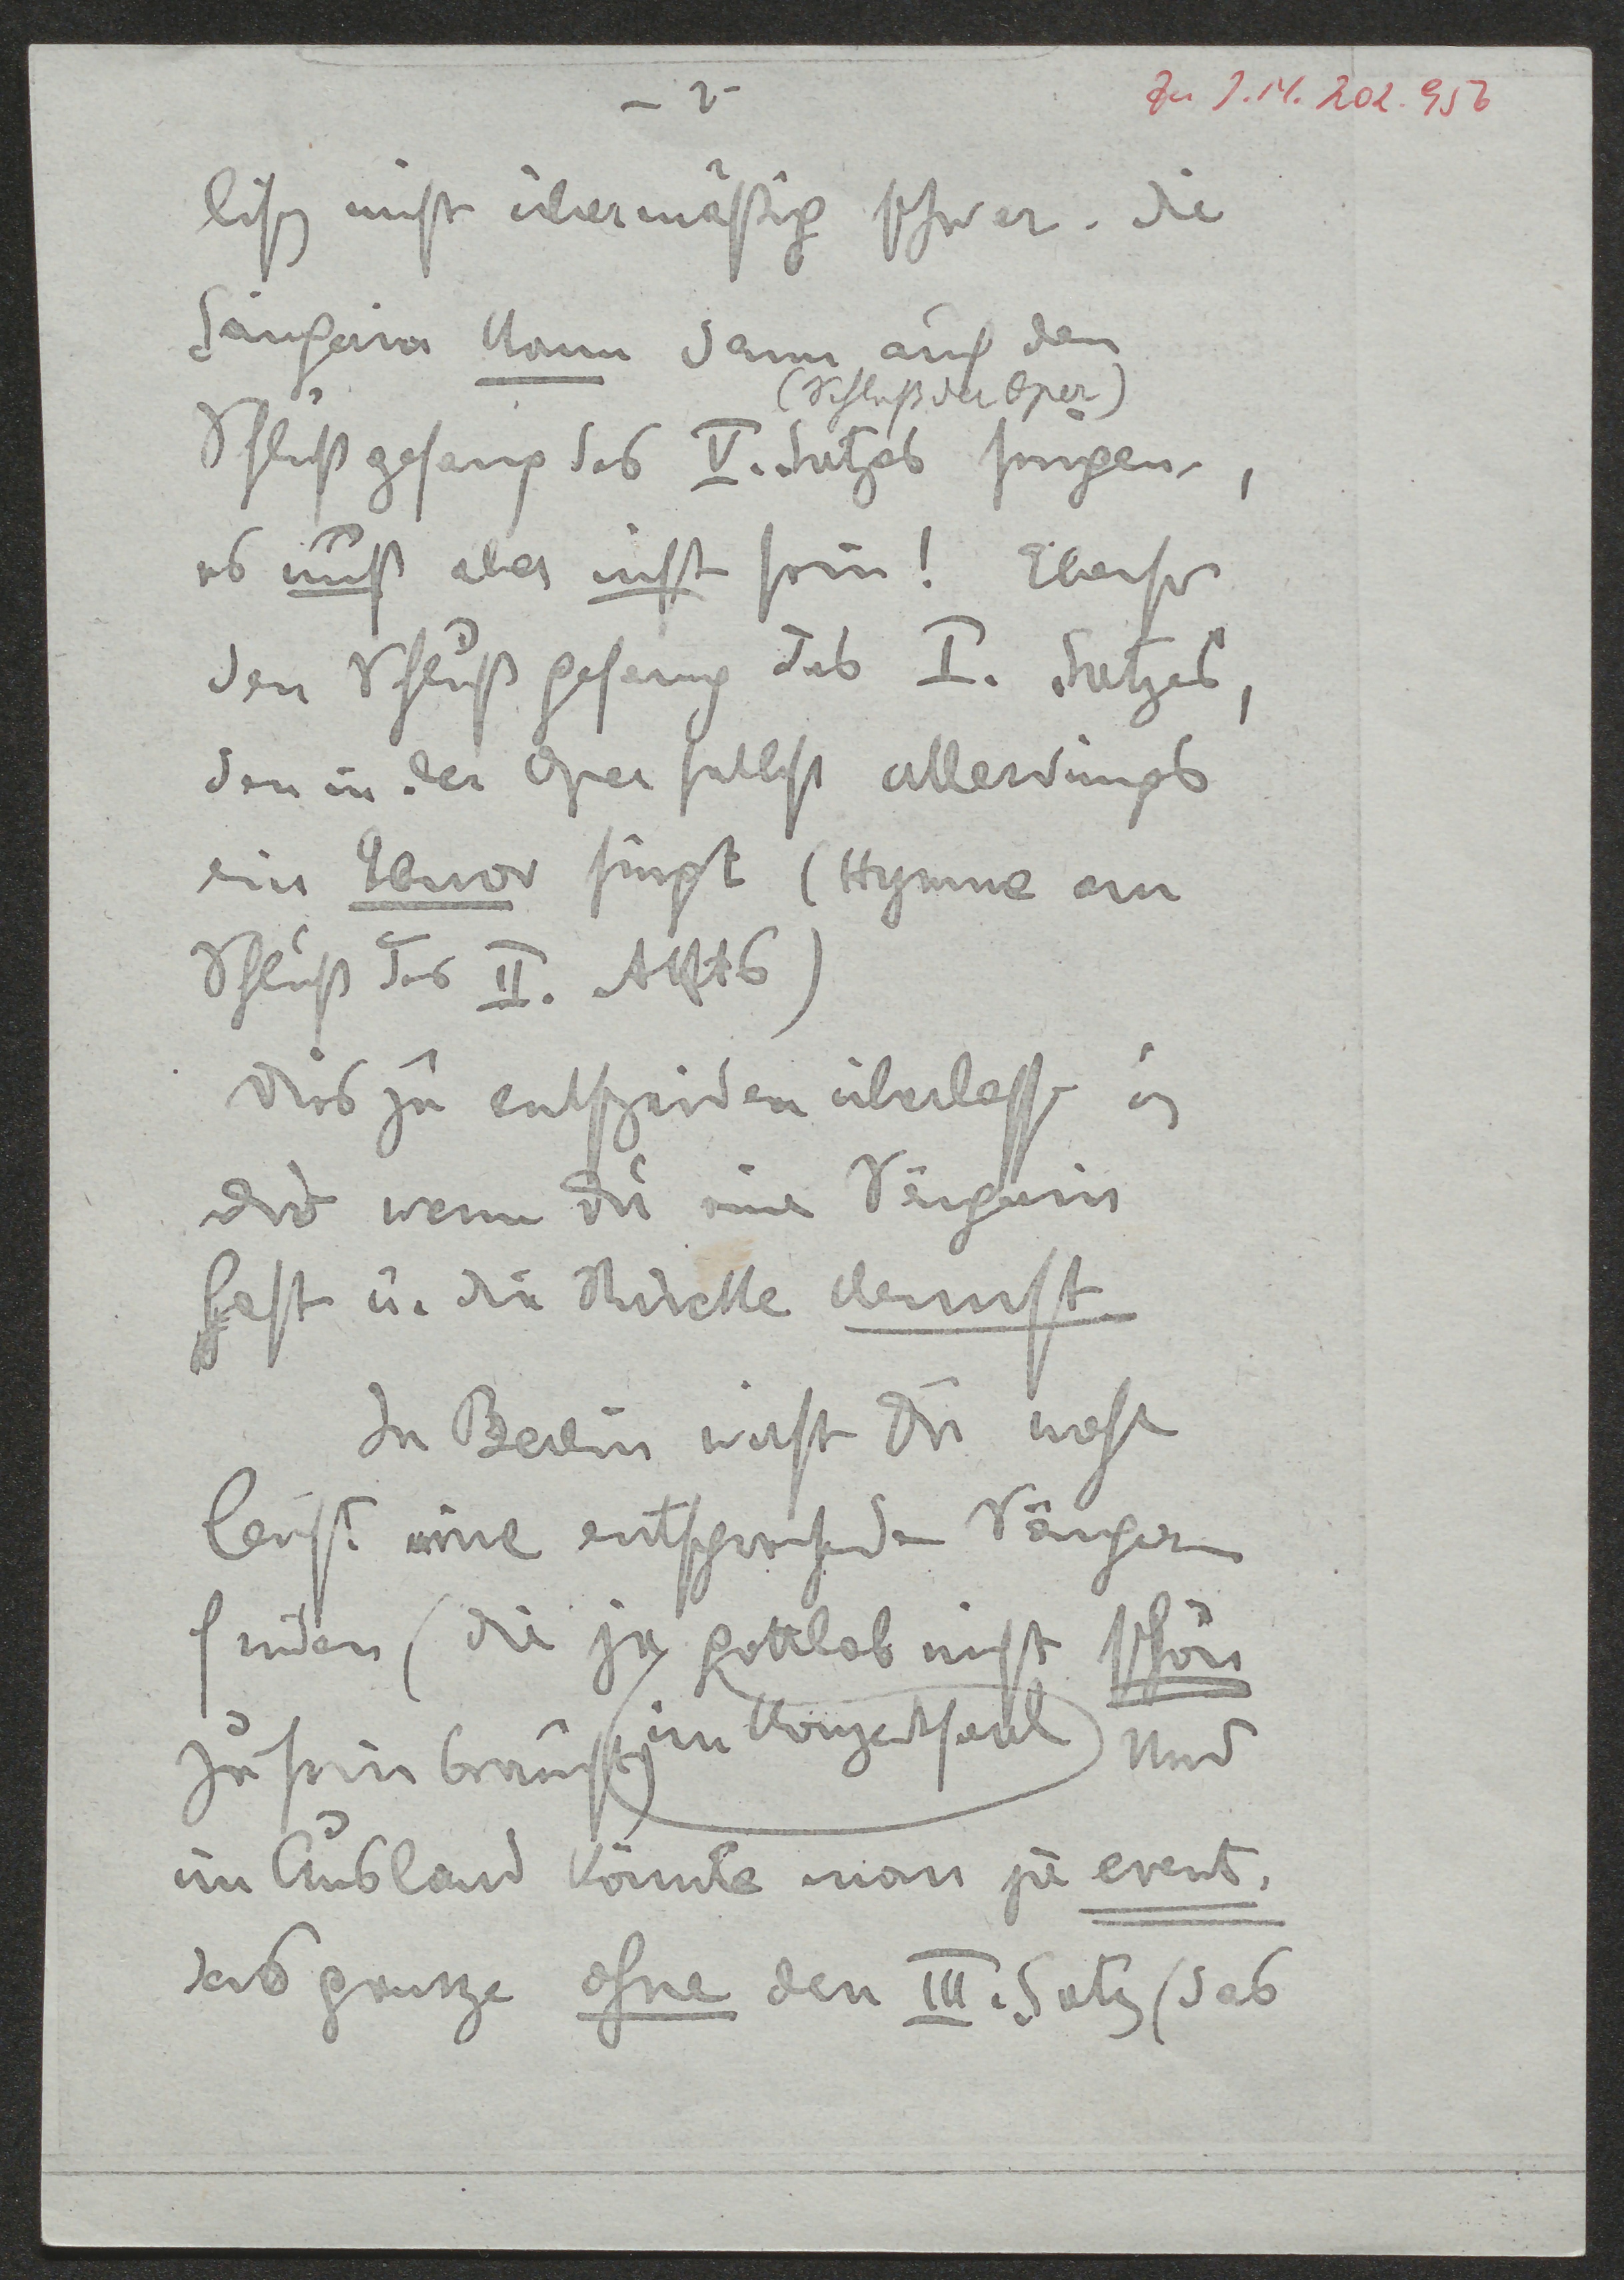 - 2 -
Zu I.N. 202.956
lich nicht übermäßig schwer. Die
Sängerin kann dann auch den
(Schluß der Oper)
Schlußgesang des V. Satzes singen,
es muß aber nicht sein! Ebenso
den Schlußgesang des I. Satzes,
den in der Oper selbst allerdings
ein Tenor singt (Hymne am
Schluß des II. Akts)
Dies zu entscheiden überlasse ich
erst wenn Du eine Sängerin
hast u. die Stücke kennst
In Berlin wirst Du wohl
leicht eine entsprechende Sängerin
finden (die ja gottlob nicht schön
zu sein braucht) im Konzertsaal Und
im Ausland könnte man ja event.
das ganze ohne den III. Satz (das